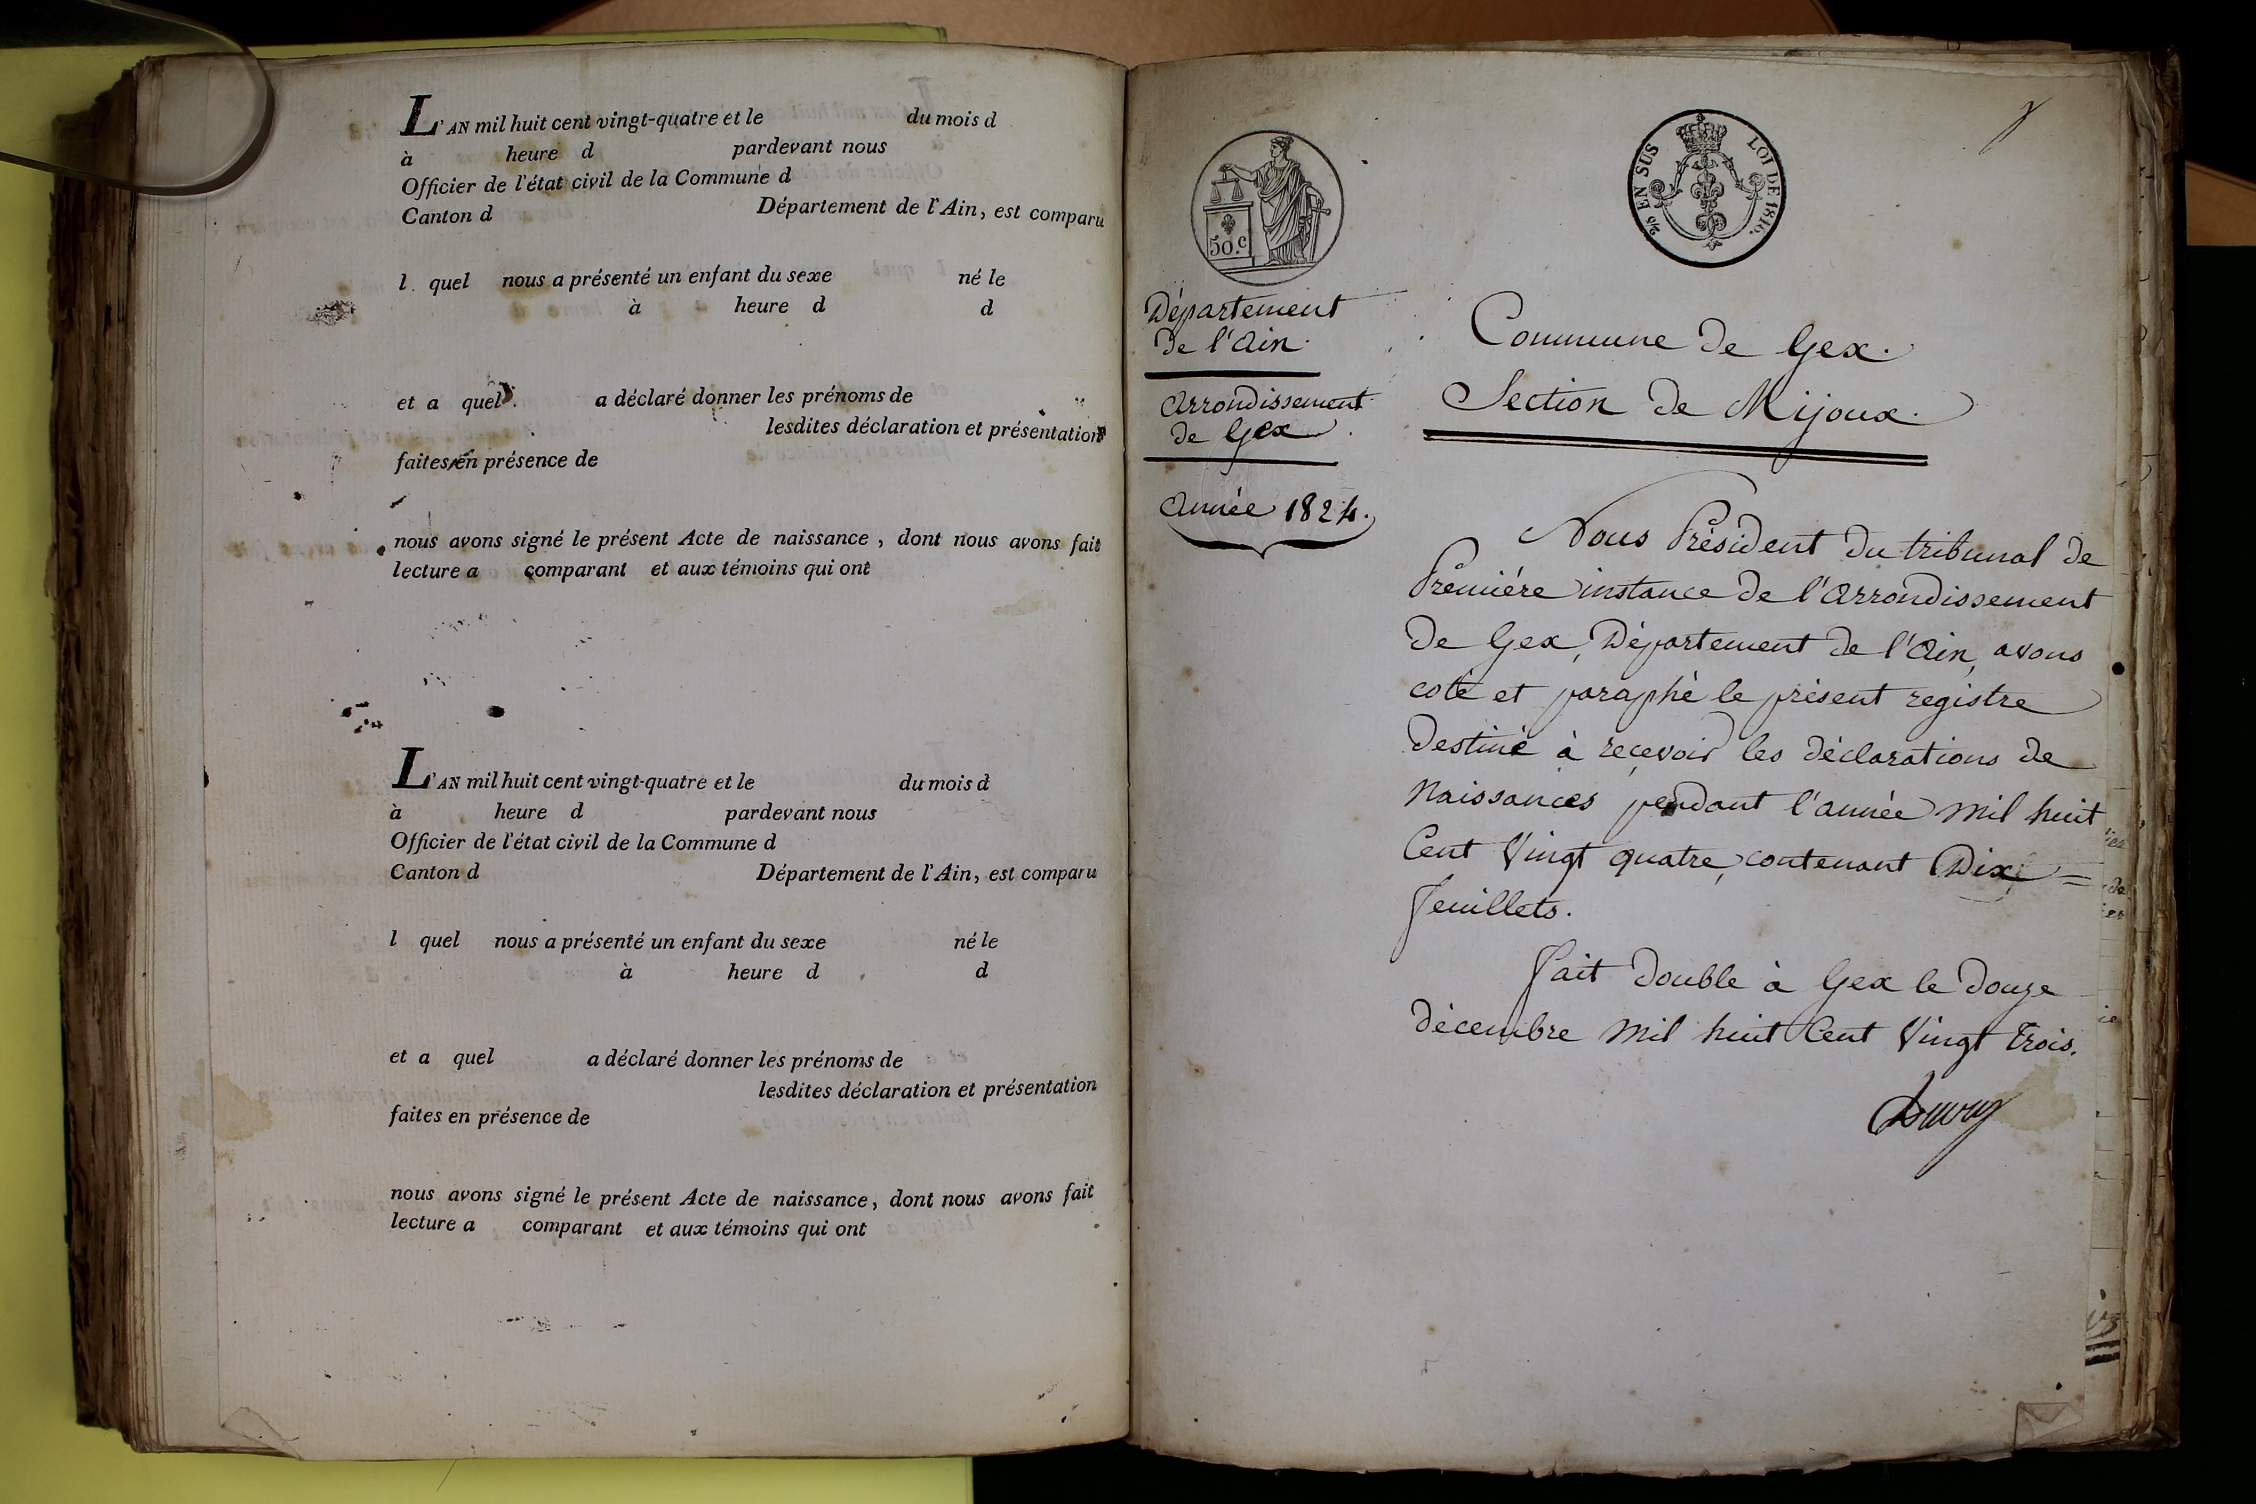 L'AN mil huit cent vingt-quatre et le du mois d
à heure d pardevant nous
Officier de l'état civil de la Commune d
Canton d Département de l'Ain, est comparu
l quel nous a présenté un enfant du sexe né le
à heure d d
et a quel a déclaré donner les prénoms de
lesdites déclaration et présentation
faites en présence de
nous avons signé le présent Acte de naissance, dont nous avons fait
lecture a comparant et aux témoins qui ont
L'AN mil huit cent vingt-quatre et le du mois d
à heure d pardevant nous
Officier de l'état civil de la Commune d
Canton d Département de l'Ain, est comparu
l quel nous a présenté un enfant du sexe né le
à heure d d
et a quel a déclaré donner les prénoms de
lesdites déclaration et présentation
faites en présence de
nous avons signé le présent Acte de naissance, dont nous avons fait
lecture a comparant et aux témoins qui ont
50.c
EN SUS LOI DE 1816.
Département
de l'Ain.
Arrondissement
de Gex
Année 1824.
Commune de Gex.
Section de Mijoux.
Nous Président du tribunal de
Première instance de l'Arrondissement
de Gex, Département de l'Ain, avons
coté et paraphé le présent registre
destiné à recevoir les déclarations de
Naissances pendant l'année mil huit
Cent Vingt quatre, contenant Dix =
feuillets.
Fait double à Gex le douze
décembre mil huit Cent Vingt trois.